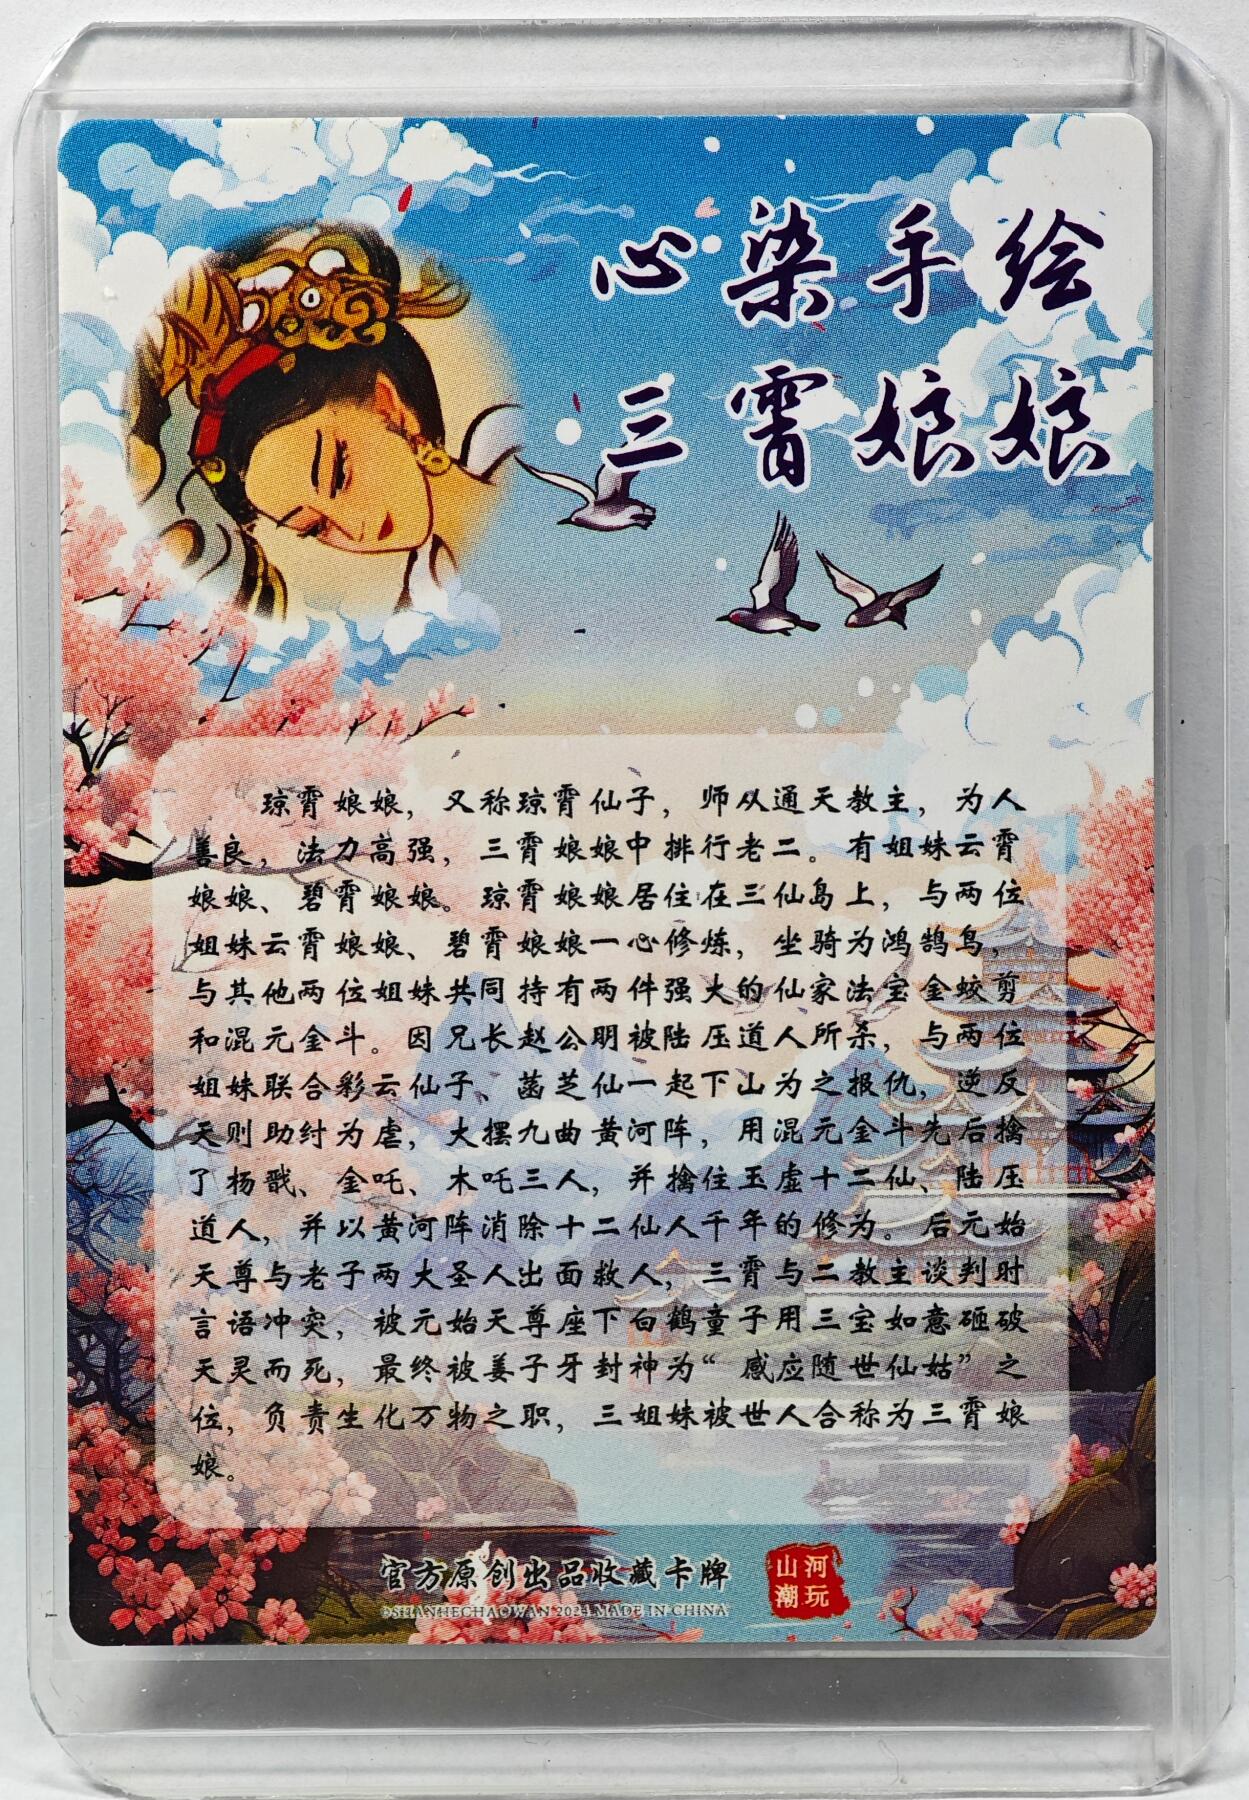 心染手绘
三霄娘娘
琼霄娘娘，又称琼霄仙子，师从通天教主，为人
善良，法力高强，三霄娘娘中排行老二。有姐妹云霄
娘娘、碧霄娘娘。琼霄娘娘居住在三仙岛上，与两位
姐妹云霄娘娘、碧霄娘娘一心修炼，坐骑为鸿鹄鸟，
与其他两位姐妹共同持有两件强大的仙家法宝金蛟剪
和混元金斗。因兄长赵公明被陆压道人所杀，与两位
姐妹联合彩云仙子、菡芝仙一起下山为之报仇，逆反
天则助纣为虐，大摆九曲黄河阵，用混元金斗先后擒
了杨戬、金吒、木吒三人，并擒住玉虚十二仙、陆压
道人，并以黄河阵消除十二仙人千年的修为。后元始
天尊与老子两大圣人出面救人，三霄与二教主谈判时
言语冲突，被元始天尊座下白鹤童子用三宝如意砸破
天灵而死，最终被姜子牙封神为“感应随世仙姑”之
位，负责生化万物之职，三姐妹被世人合称为三霄娘
娘。
官方原创出品收藏卡牌
©SHANHECHAOWAN 2024.MADE IN CHINA
山河
潮玩